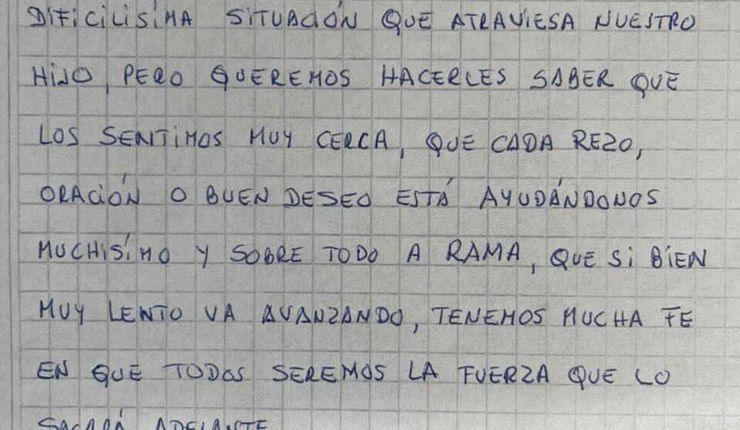 DIFICILISIMA SITUACIÓN QUE ATRAVIESA NUESTRO
HIJO, PERO QUEREMOS HACERLES SABER QUE
LOS SENTIMOS MUY CERCA, QUE CADA REZO,
ORACIÓN O BUEN DESEO ESTÁ AYUDÁNDONOS
MUCHISÍMO Y SOBRE TODO A RAMA, QUE SI BIEN
MUY LENTO VA AVANZANDO, TENEMOS MUCHA FE
EN QUE TODOS SEREMOS LA FUERZA QUE LO
SACARÁ ADELANTE